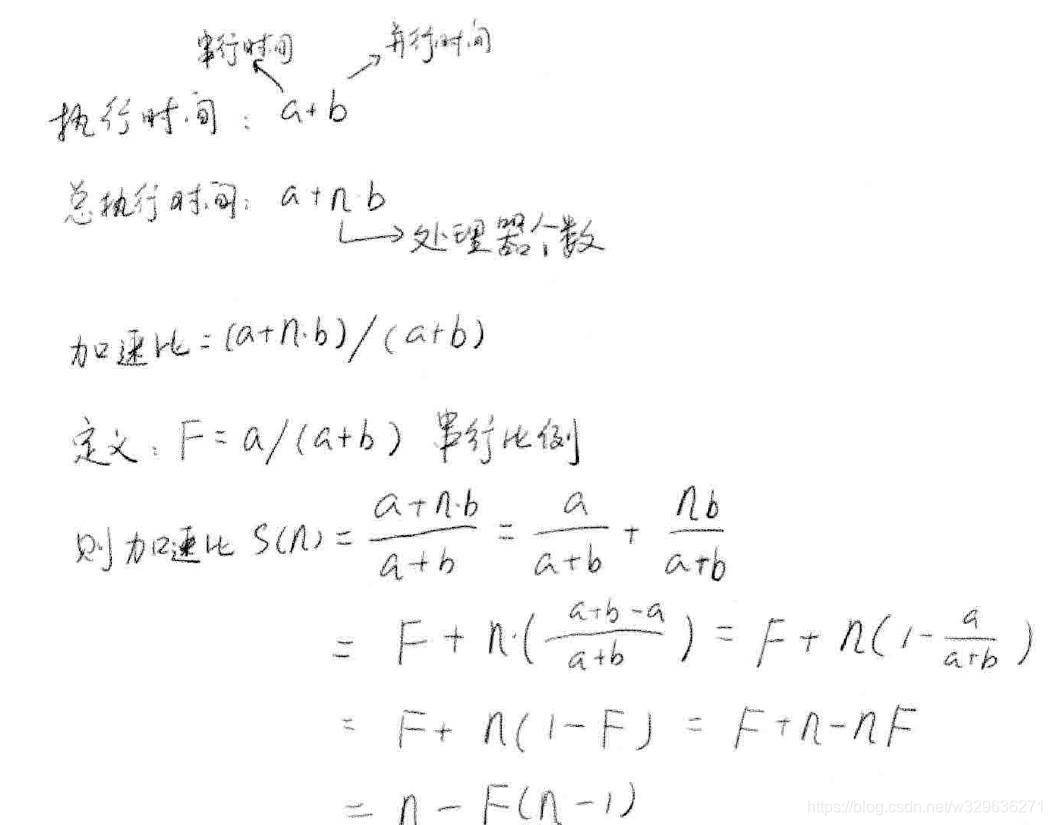 串行时间 并行时间
执行时间: a+b
总执行时间: a+n·b
处理器个数
加速比=(a+n·b)/(a+b)
定义: F=a/(a+b) 串行比例
则加速比 S(n)= \frac{a+n·b}{a+b} = \frac{a}{a+b} + \frac{nb}{a+b}
= F+n·(\frac{a+b-a}{a+b}) = F+n(1-\frac{a}{a+b})
= F+n(1-F) = F+n-nF
= n-F(n-1)
https://blog.csdn.net/w329636271